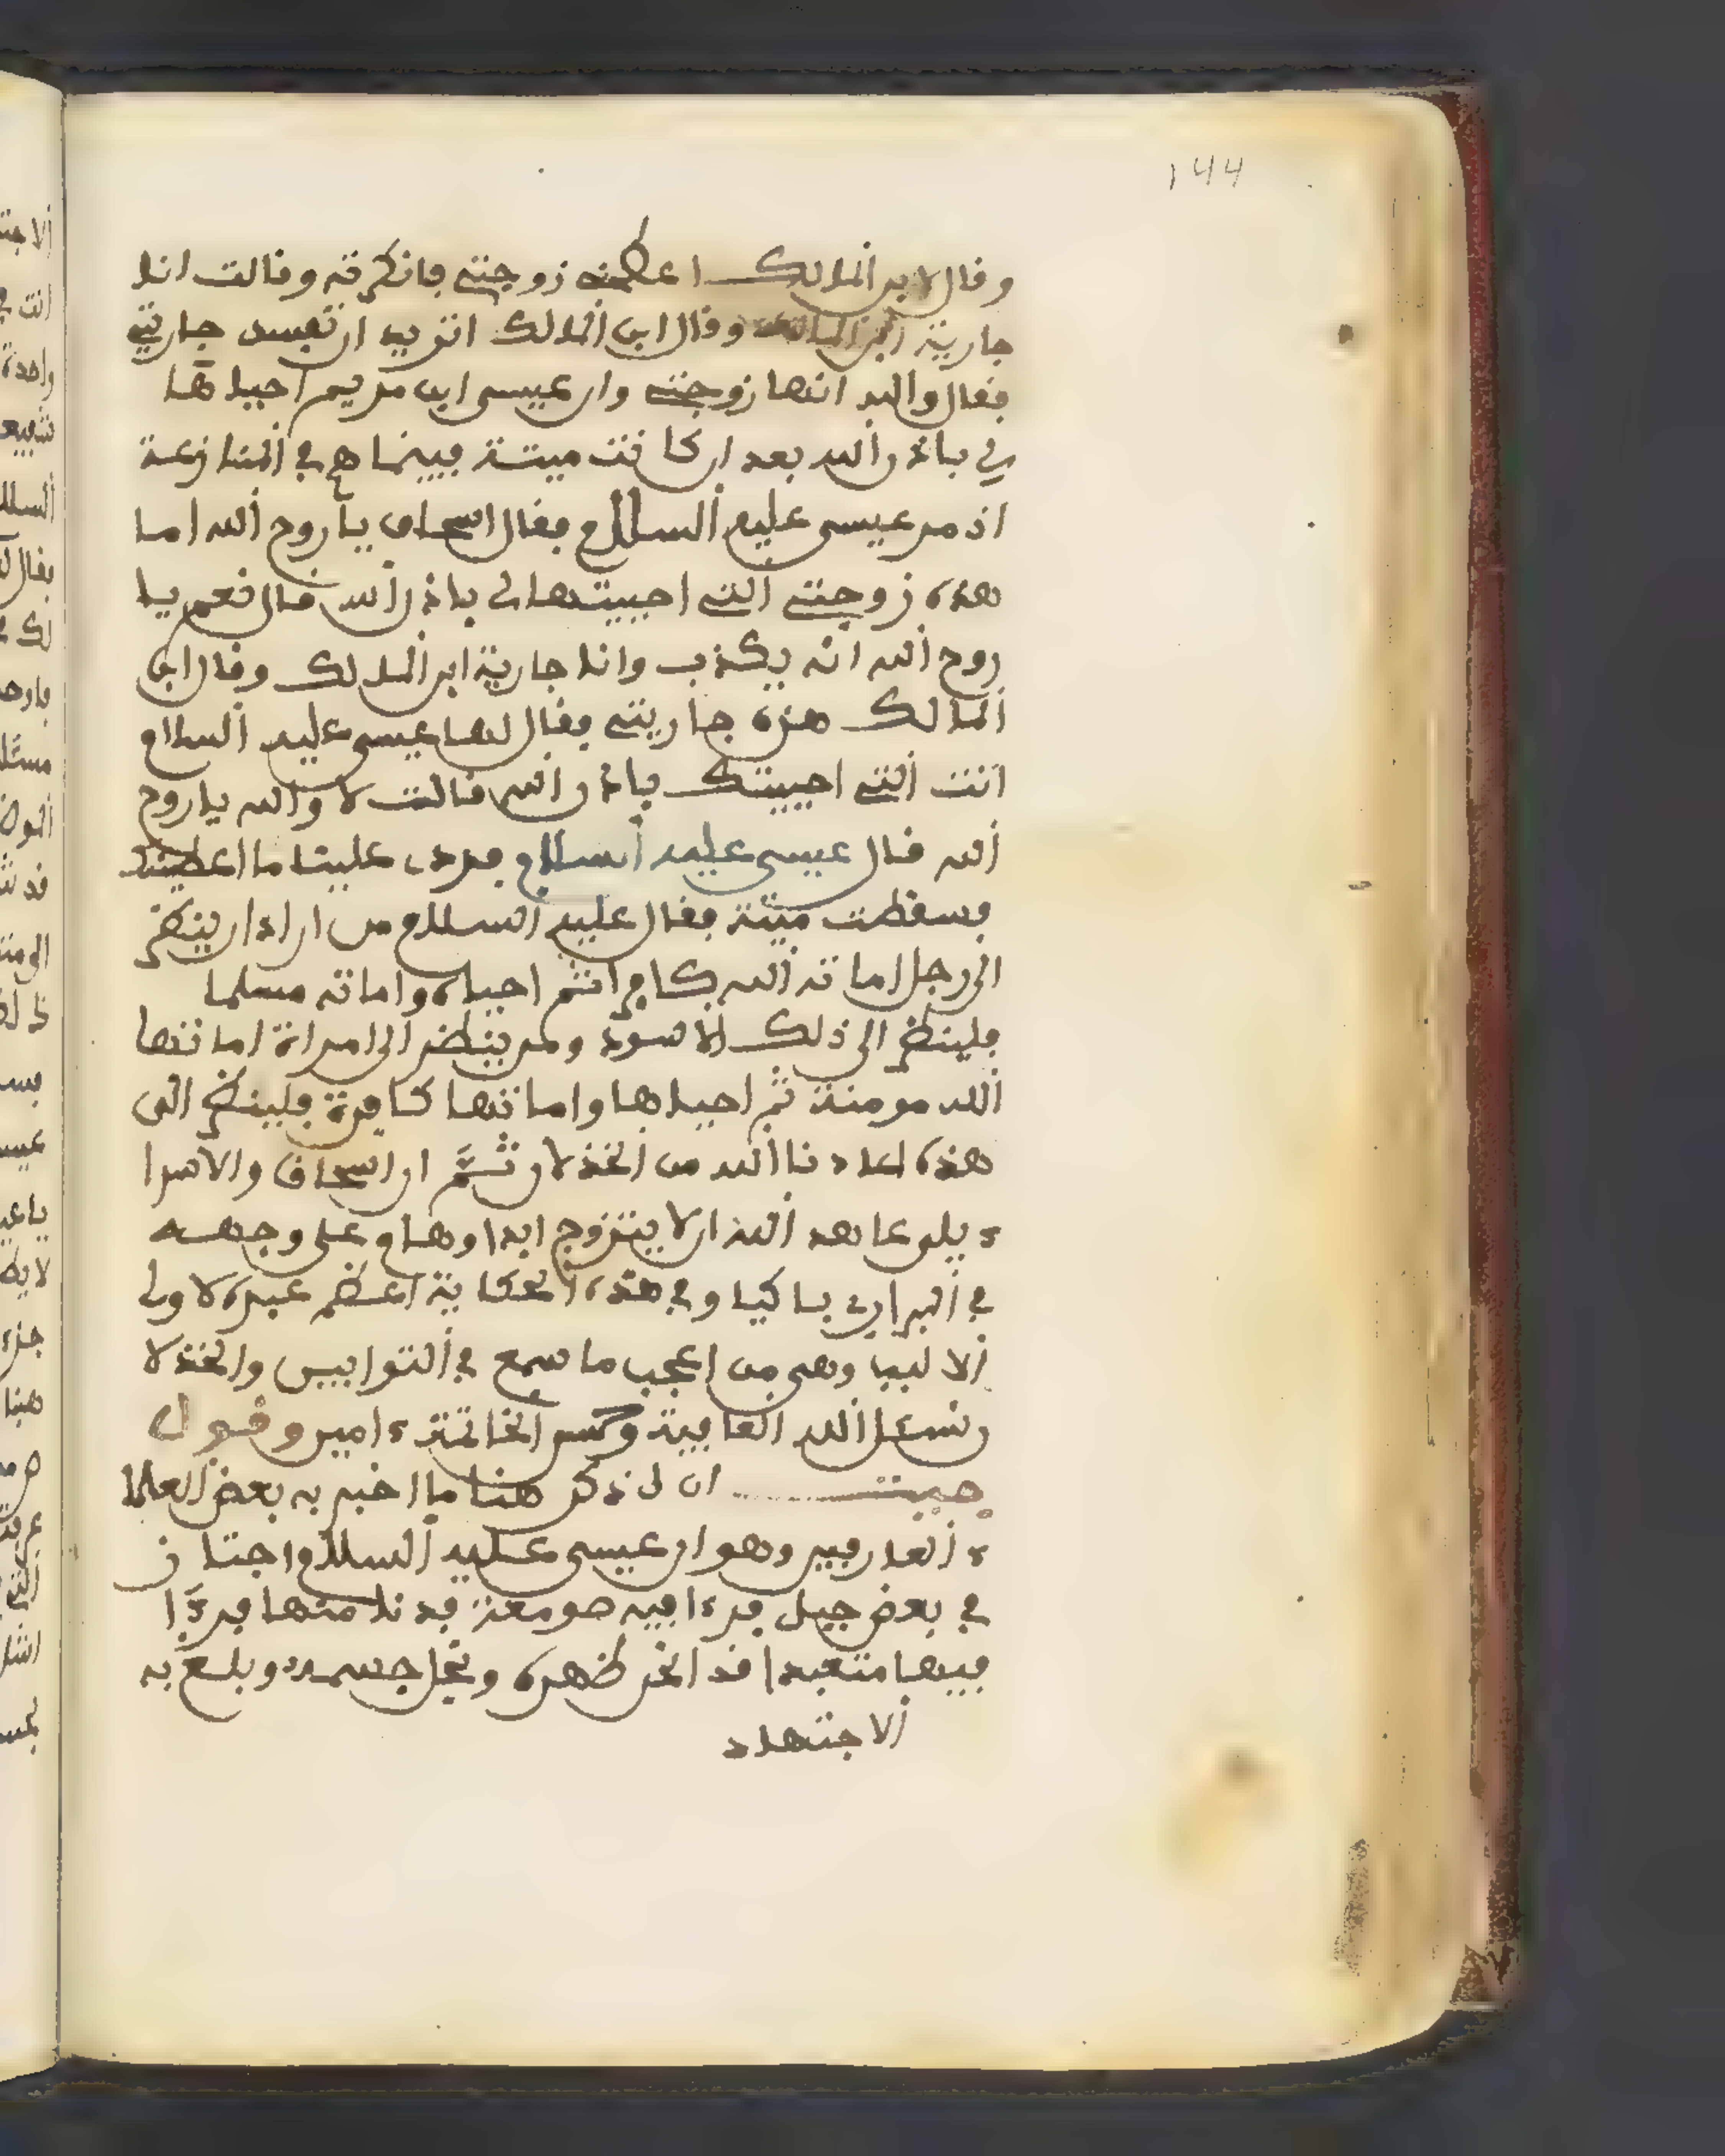 144
وقال لابن المالك اعطني زوجتي فانكرته وقالت انا
جارية ابن المالك وقال ابن المالك اتريد ان تفسد جاريتي
فقال والله انها زوجتي وان عيسى ابن مريم احياها
لي باذن الله بعد ان كانت ميتة فبينما هم في المنازعة
اذ مر عيسى عليه السلام فقال اسحاق يا روح الله اما
هذه زوجتي التي احييتها لي باذن الله قال نعم يا
روح الله انه يكذب وانا جارية ابن المالك وقال ابن
المالك هذه جاريتي فقال لها عيسى عليه السلام
انت التي احييتك باذن الله قالت لا والله يا روح
الله قال عيسى عليه السلام فردى علينا ما اعطيناك
فسقطت ميتة فقال عليه السلام من اراد ان ينظر
الى رجل اماته الله كافرا ثم احياه واماته مسلما
فلينظر الى ذلك الاسود ومن ينظر الى امراة اماتها
الله مومنة ثم احياها واماتها كافرة فلينظر الى
هذه اعاذنا الله من الخذلان ثم ان اسحاق والاسرا
ءيلى عاهد الله ان لا يتزوج ابدا وهام على وجهه
في البرارى باكيا وفي هذه الحكاية اعظم عبرة لاولى
الالباب وهى من اعجب ما سمع في التوابين والخذلا
ن نسئل الله العافية وحسن الخاتمة ءامين وقول
حبيت ان نذكر هنا ما اخبر به بعض العلما
ء العارفين وهو ان عيسى عليه السلام اجتاز
في بعض جبل فرءا فيه صومعة فدنا منها فرءا
فيها متعبدا قد انحنى ظهره ونحل جسمه وبلغ به
الاجتهاد